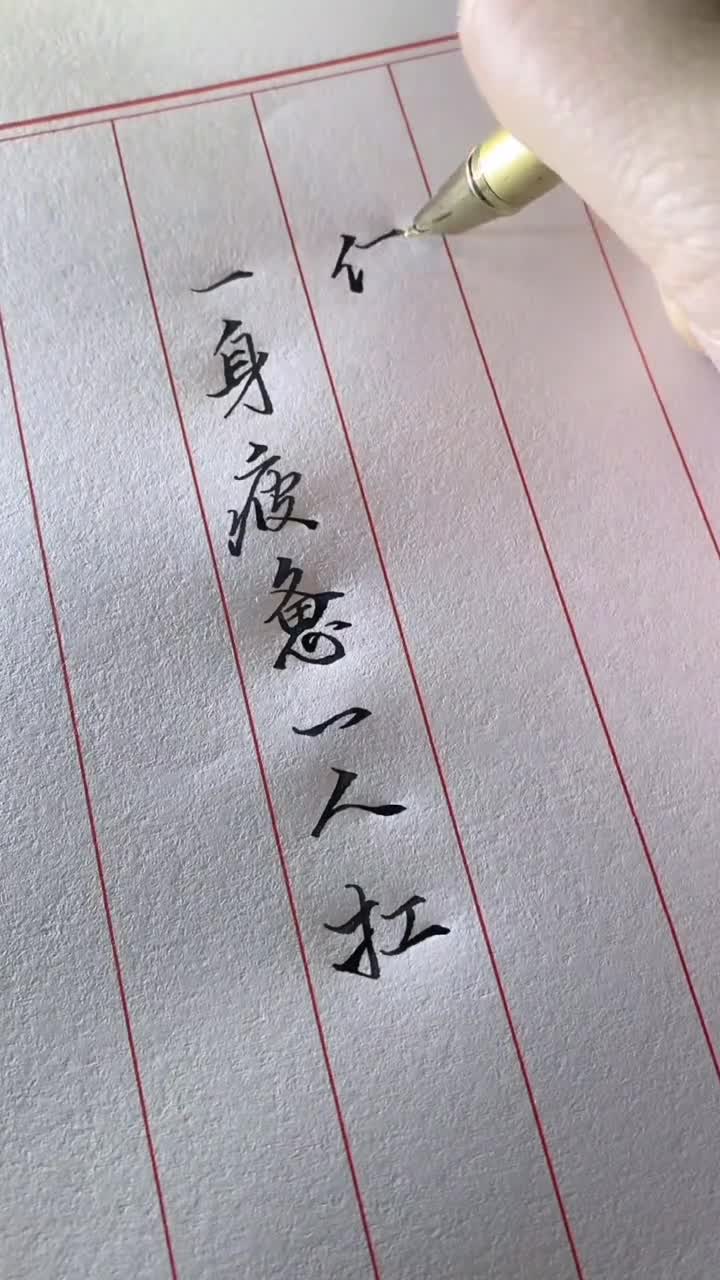 一身疲惫一人扛